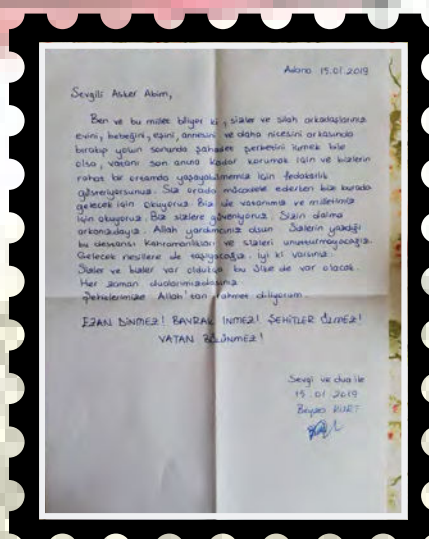 Adana 15.01.2019
Sevgili Asker Abim,
Ben ve bu millet biliyor ki, sizler ve silah arkadaşlarınız
evini, bebeğini, eşini, annesini ve daha nicesini arkasında
bırakıp yolun sonunda şahadet şerbetini içmek bile
olsa, vatanı son anına kadar korumak için ve bizlerin
rahat bir ortamda yaşayabilmemiz için fedakarlık
gösteriyorsunuz. Siz orada mücadele ederken biz burada
gelecek için okuyoruz. Biz de vatanımız ve milletimiz
için okuyoruz. Biz sizlere güveniyoruz. Sizin daima
arkanızdayız. Allah yardımcınız olsun. Sizlerin yazdığı
bu destansı kahramanlıkları ve sizleri unutturmayacağız.
Gelecek nesillere de taşıyacağız. İyi ki varsınız.
Sizler ve bizler var oldukça bu ülke de var olacak.
Her zaman dualarımızdasınız.
Şehitlerimize Allah'tan rahmet diliyorum.
EZAN DİNMEZ! BAYRAK İNMEZ! ŞEHİTLER ÖLMEZ!
VATAN BÖLÜNMEZ!
Sevgi ve dua ile
15.01.2019
Beyza KURT